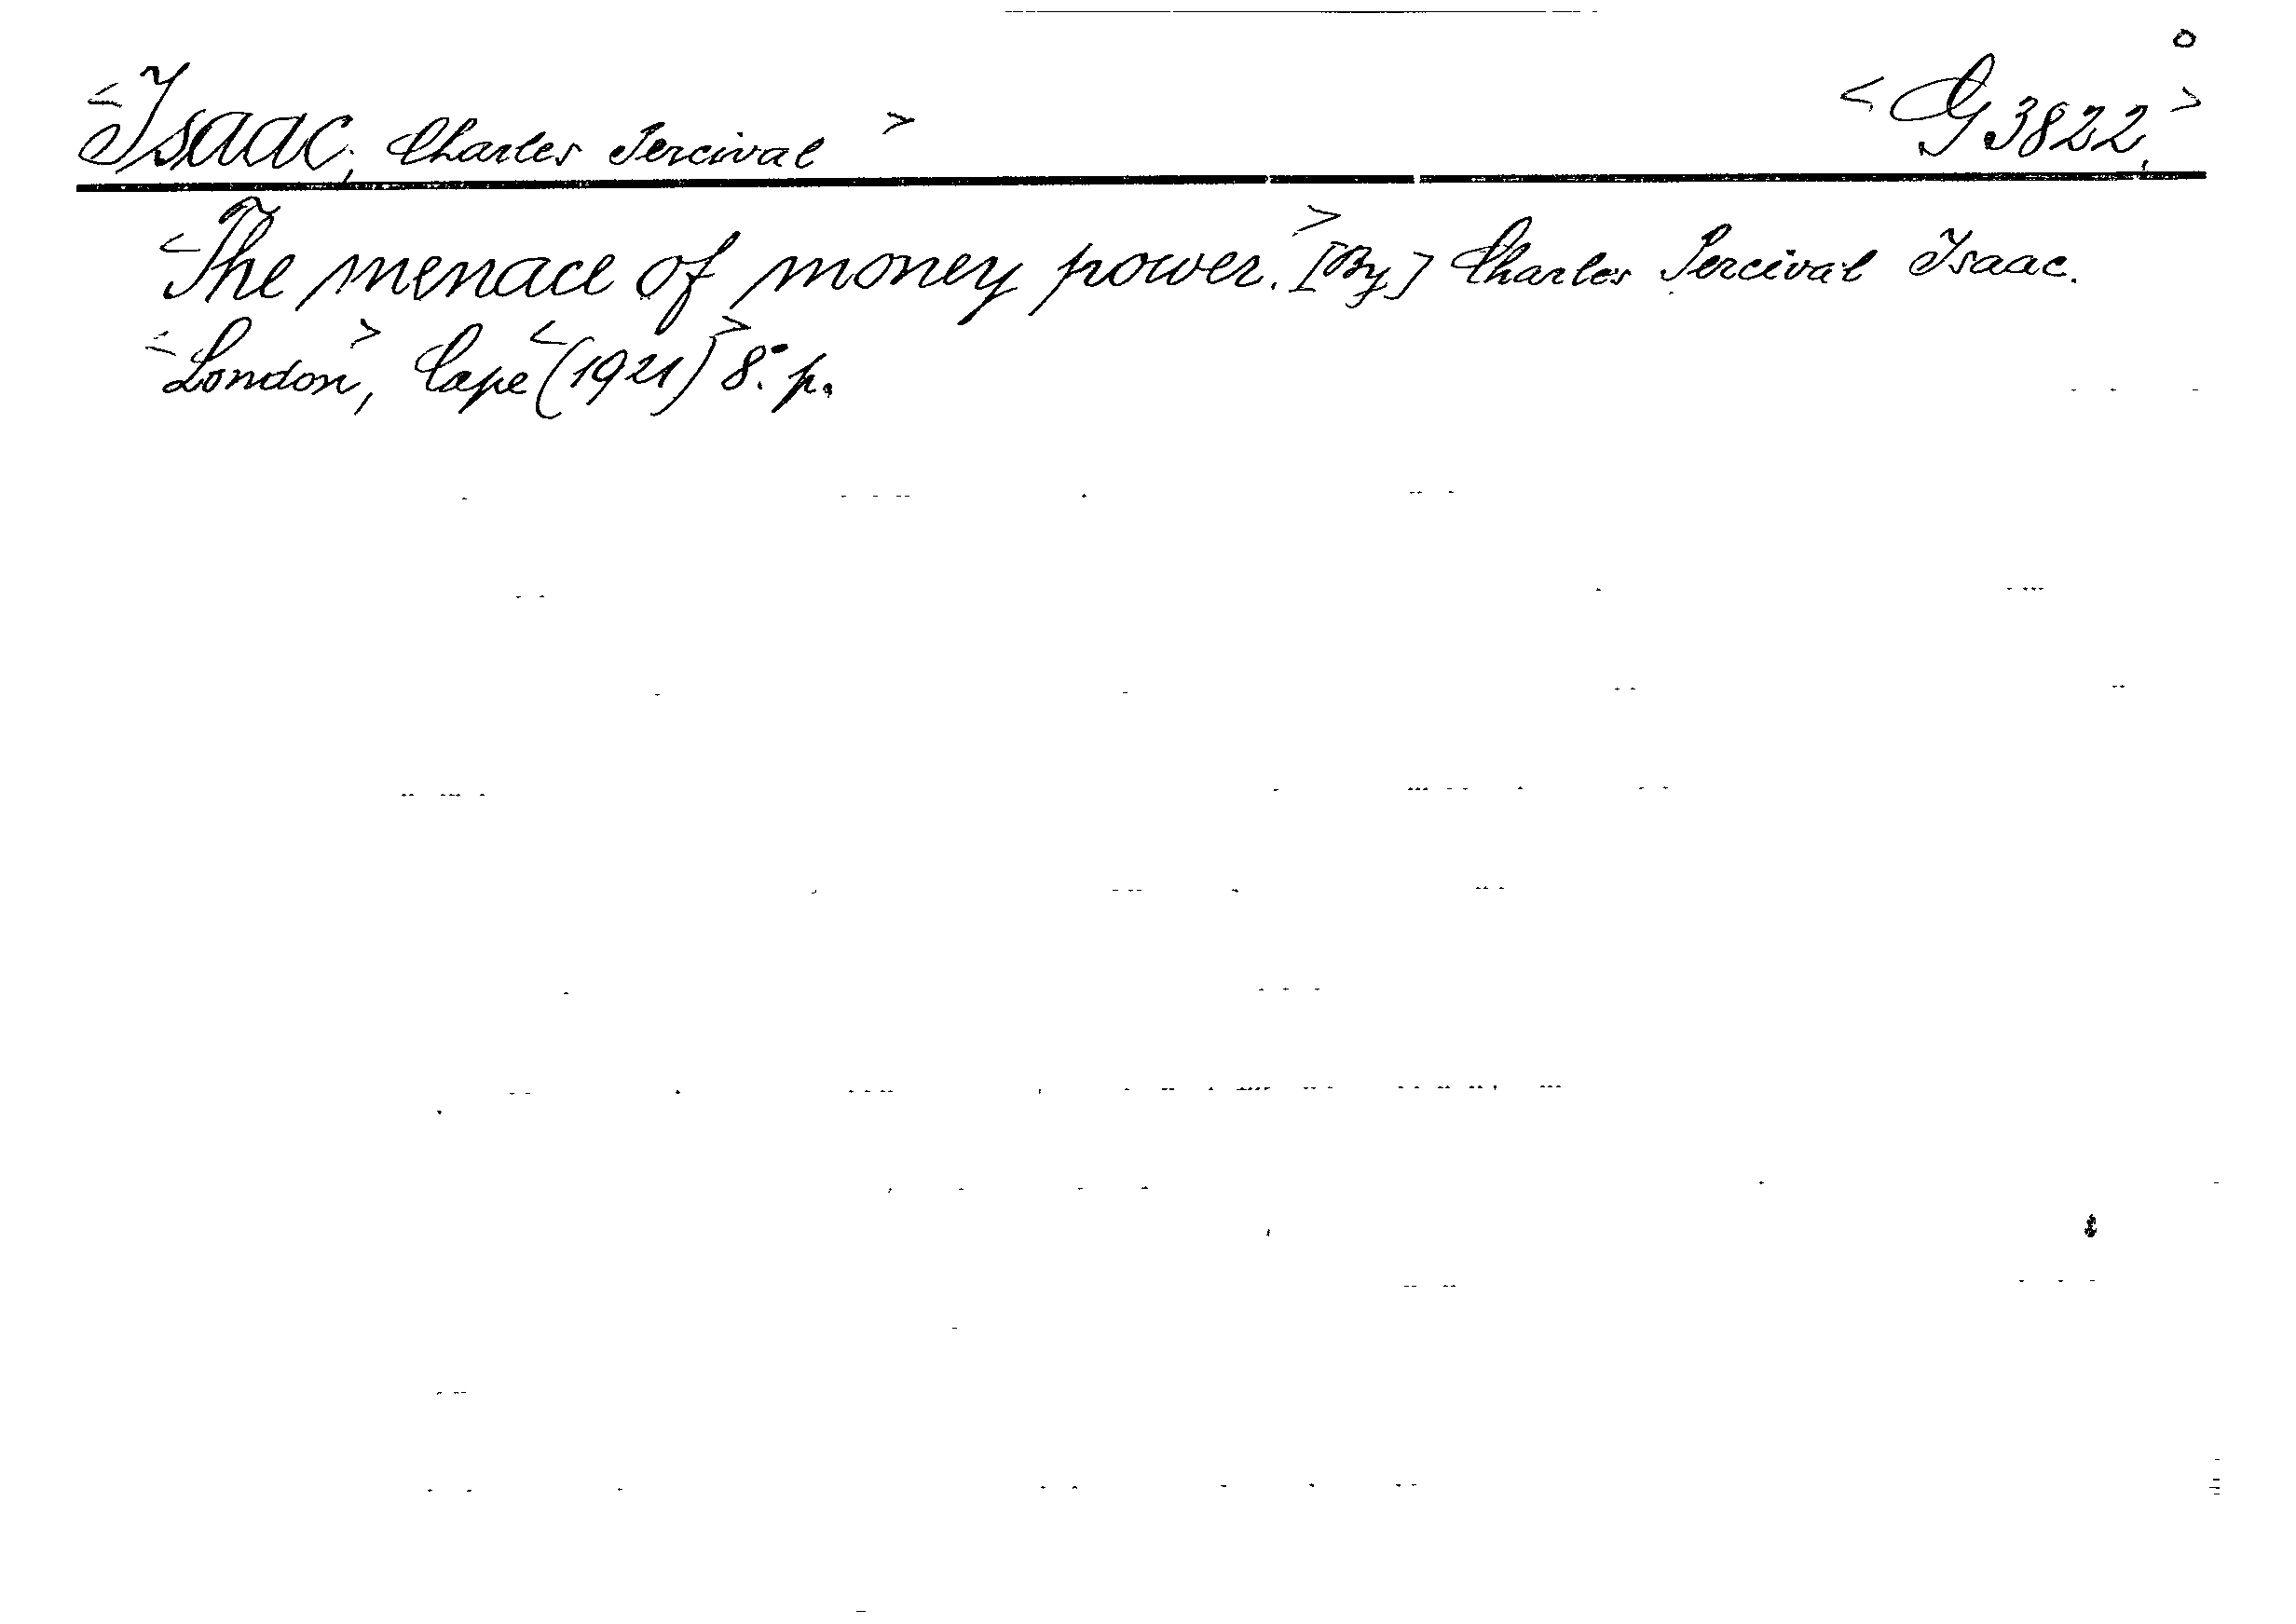 <Isaac, Charles Percival> <G 3822.>
<The menace of money power.> [By] Charles Percival Isaac.
<London>, Cape <(1921)> 8° p.